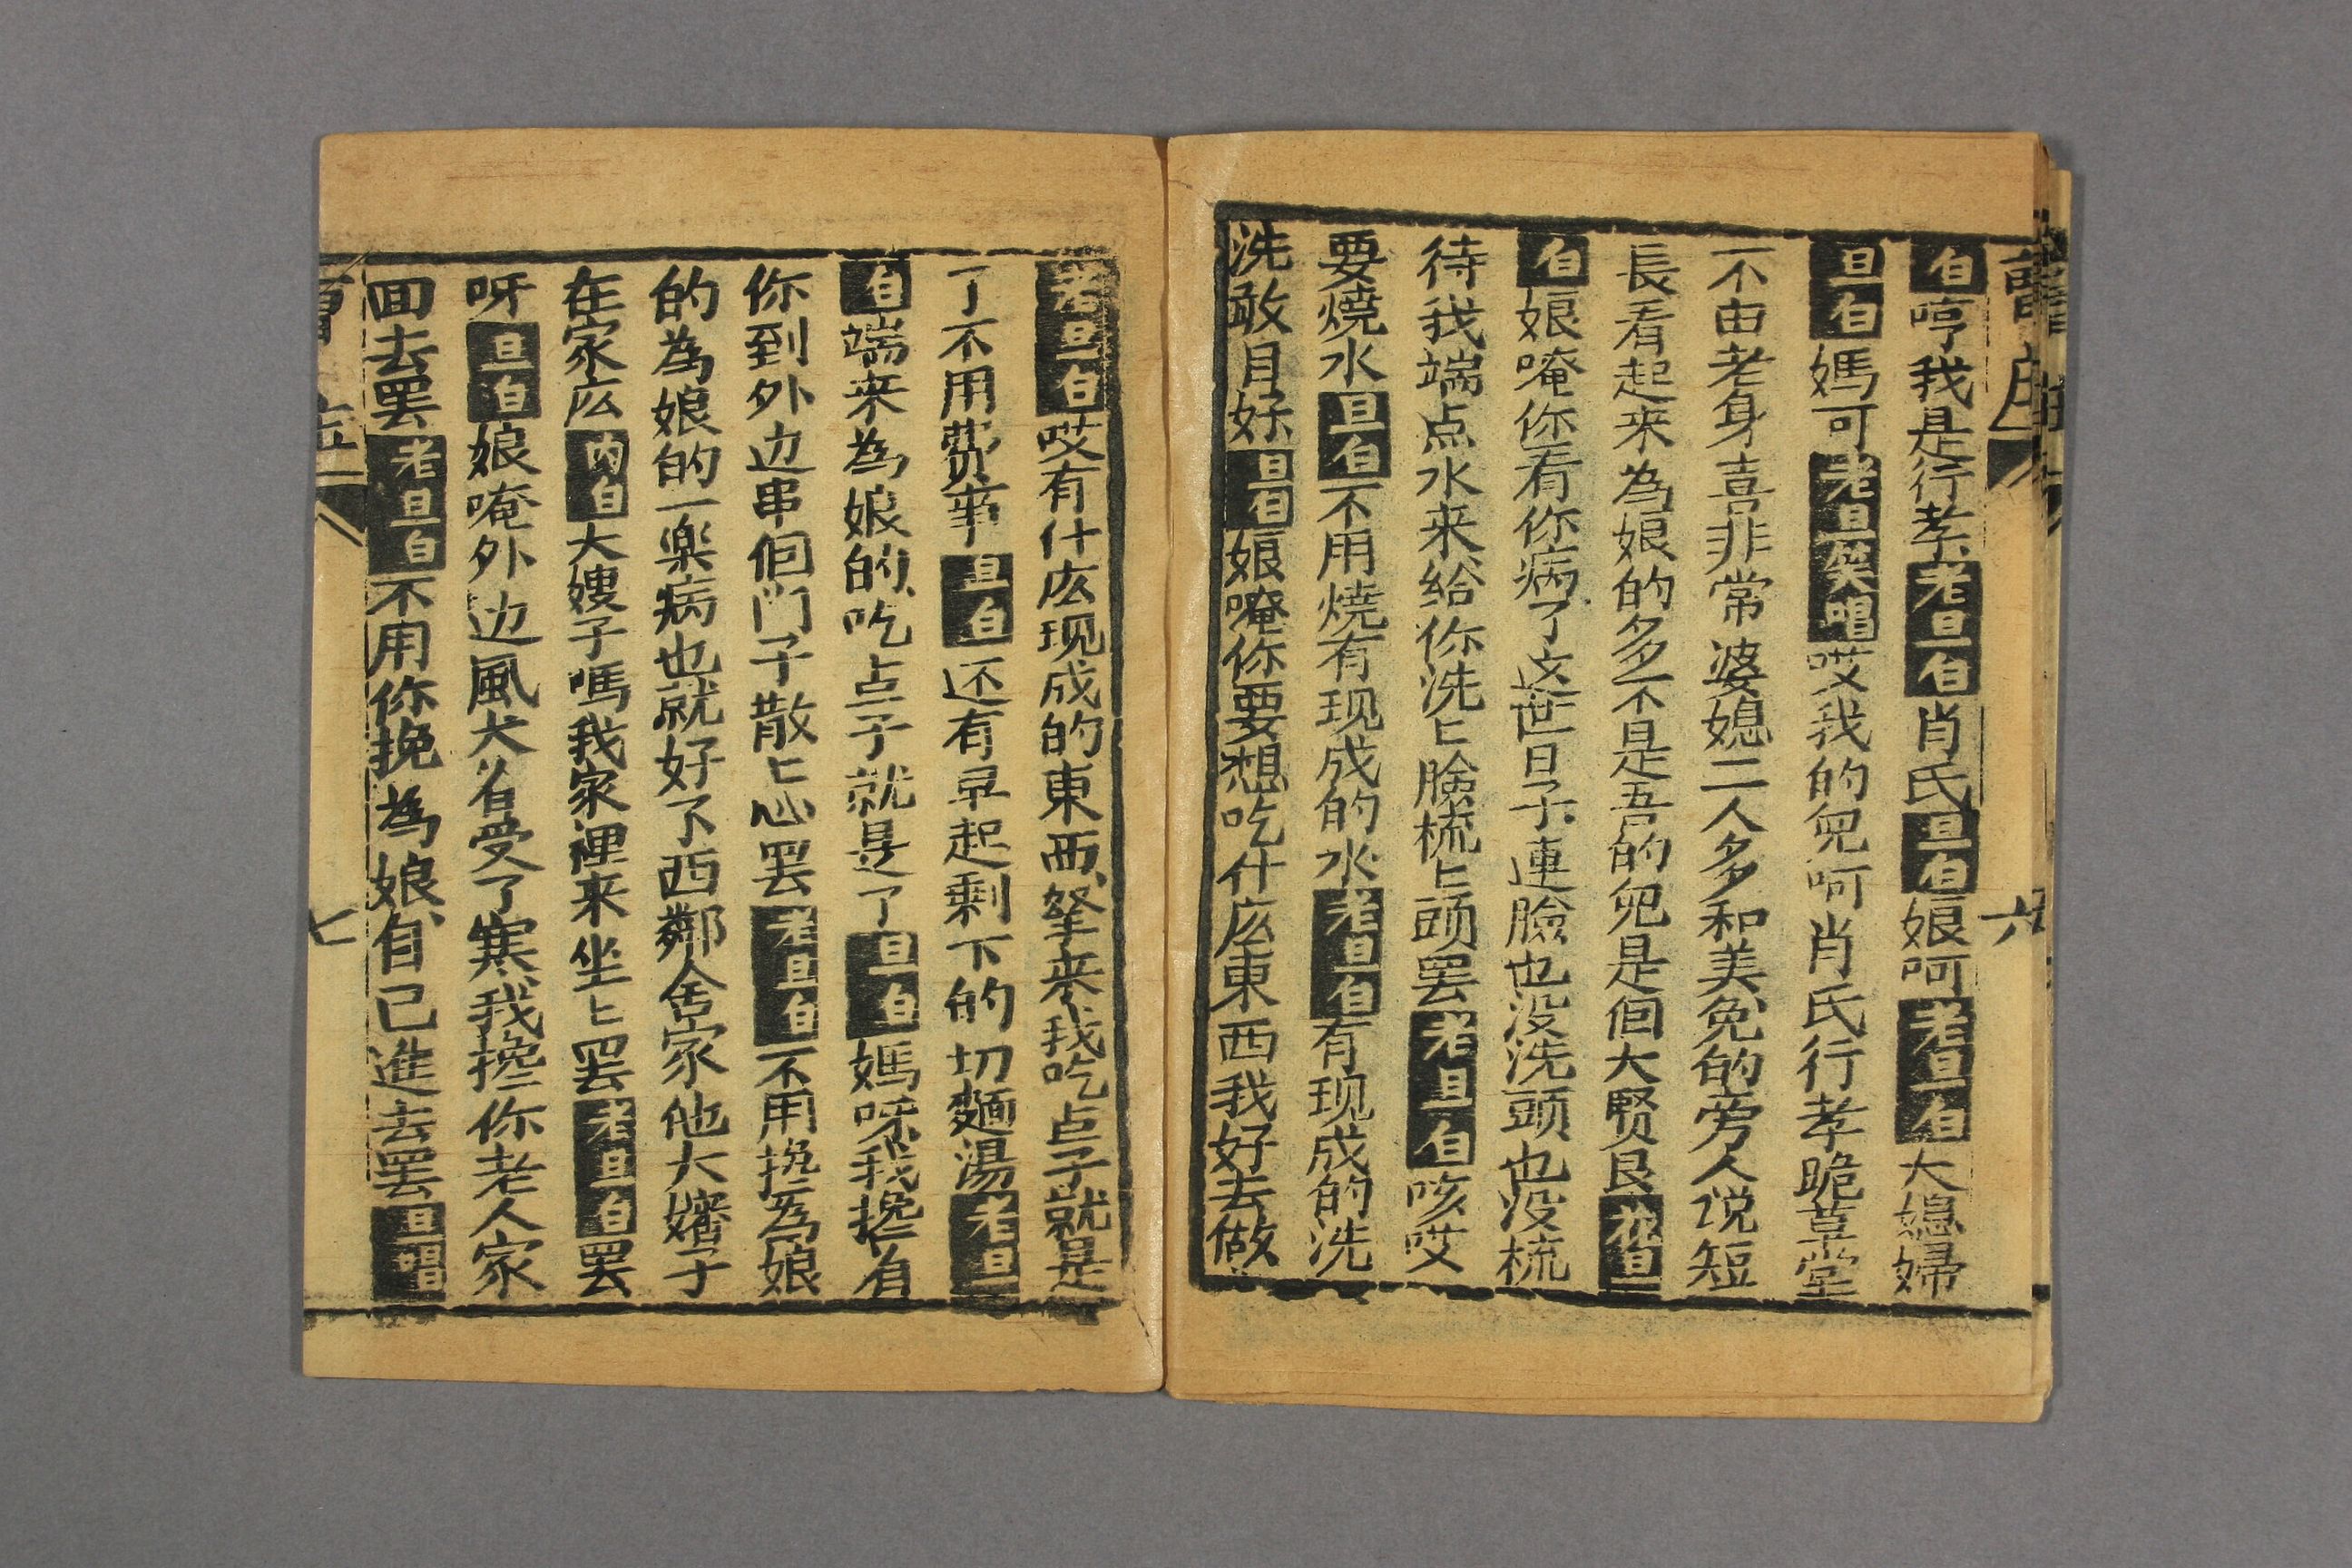 白哼我是行孝老旦白肖氏旦白娘呵老旦白大媳婦
旦白媽可老旦笑唱哎我的兒呵肖氏行孝跪草堂
不由老身喜非常婆媳二人多和美免的旁人说短
長看起来為娘的多不是吾的兒是佪大贤良老旦
白娘唵你看你病了这世日子連臉也没洗頭也没梳
待我端点水来给你洗匕臉梳匕頭罢老旦白咳哎
要燒水旦白不用燒有现成的水老旦白有现成的洗
洗敢自好旦白娘唵你要想吃什庅東西我好去做
六
老旦白哎有什庅现成的東西拏来我吃点子就是
了不用费事旦白还有早起剩下的切麵湯老旦
白端来為娘的吃点子就是了旦白媽呀我搀有
你到外边串佪门子散匕心罢老旦白不用搀為娘
的為娘的一楽病也就好了西鄰舍家他大嬸子
在家庅内白大嫂子嗎我家裡来坐匕罢老旦白罢
呀旦白娘唵外边風大若受了寒我搀你老人家
回去罢老旦白不用你挽為娘自己進去罢旦唱
七